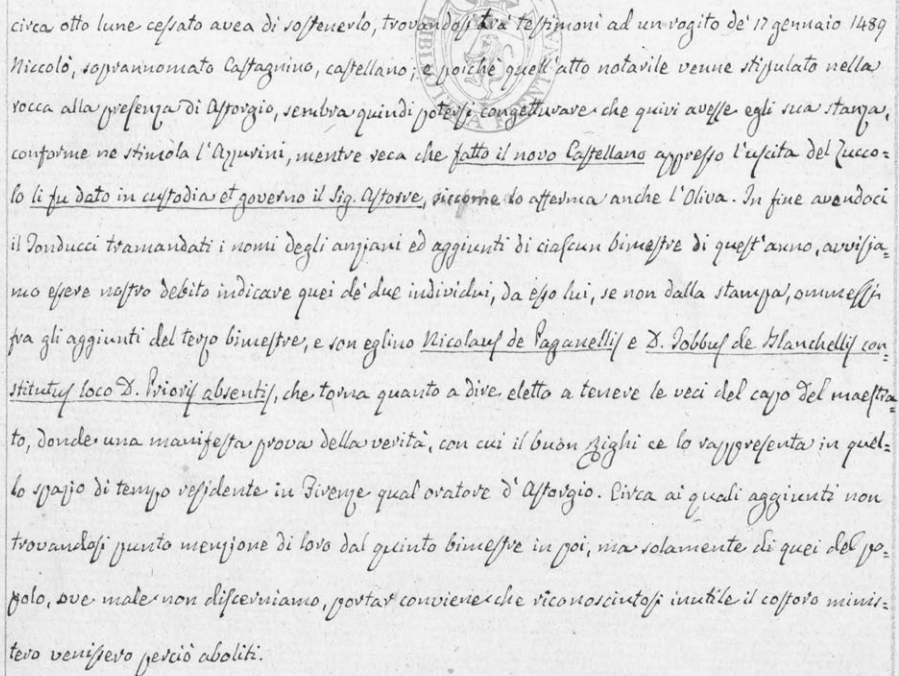 circa otto lune cessato avea di sostenerlo, trovandosi tra' testimoni ad un rogito de' 17 gennaio 1489
Niccolò, soprannomato Castagnino, castellano; e poichè quell'atto notarile venne stipulato nella
rocca alla presenza di Astorgio, sembra quindi potersi congetturare che quivi avesse egli sua stanza,
conforme ne stimola l'Azzurini, mentre reca che fatto il novo Castellano appresso l'uscita del Zucco=
lo li fu dato in custodia et governo il Sig. Astorre, siccome lo afferma anche l'Oliva. In fine avendoci
il Tonducci tramandati i nomi degli anziani ed aggiunti di ciascun bimestre di quest'anno, avvisia=
mo essere nostro debito indicare quei de' due individui, da esso lui, se non dalla stampa, ommessi
fra gli aggiunti del terzo bimestre, e son eglino Nicolaus de Paganellis e D. Jobbus de Blanchellis con=
stitutus loco D. Prioris absentis, che torna quanto a dire eletto a tenere le veci del capo del maestra=
to, donde una manifesta prova della verità, con cui il buon Zighi ce lo rappresenta in quel=
lo spazio di tempo residente in Firenze qual oratore d'Astorgio. Circa ai quali aggiunti non
trovandosi punto menzione di loro dal quinto bimestre in poi, ma solamente di quei del po=
polo, ove male non discerniamo, portar conviene che riconosciutosi inutile il costoro minis=
tero venissero perciò aboliti.